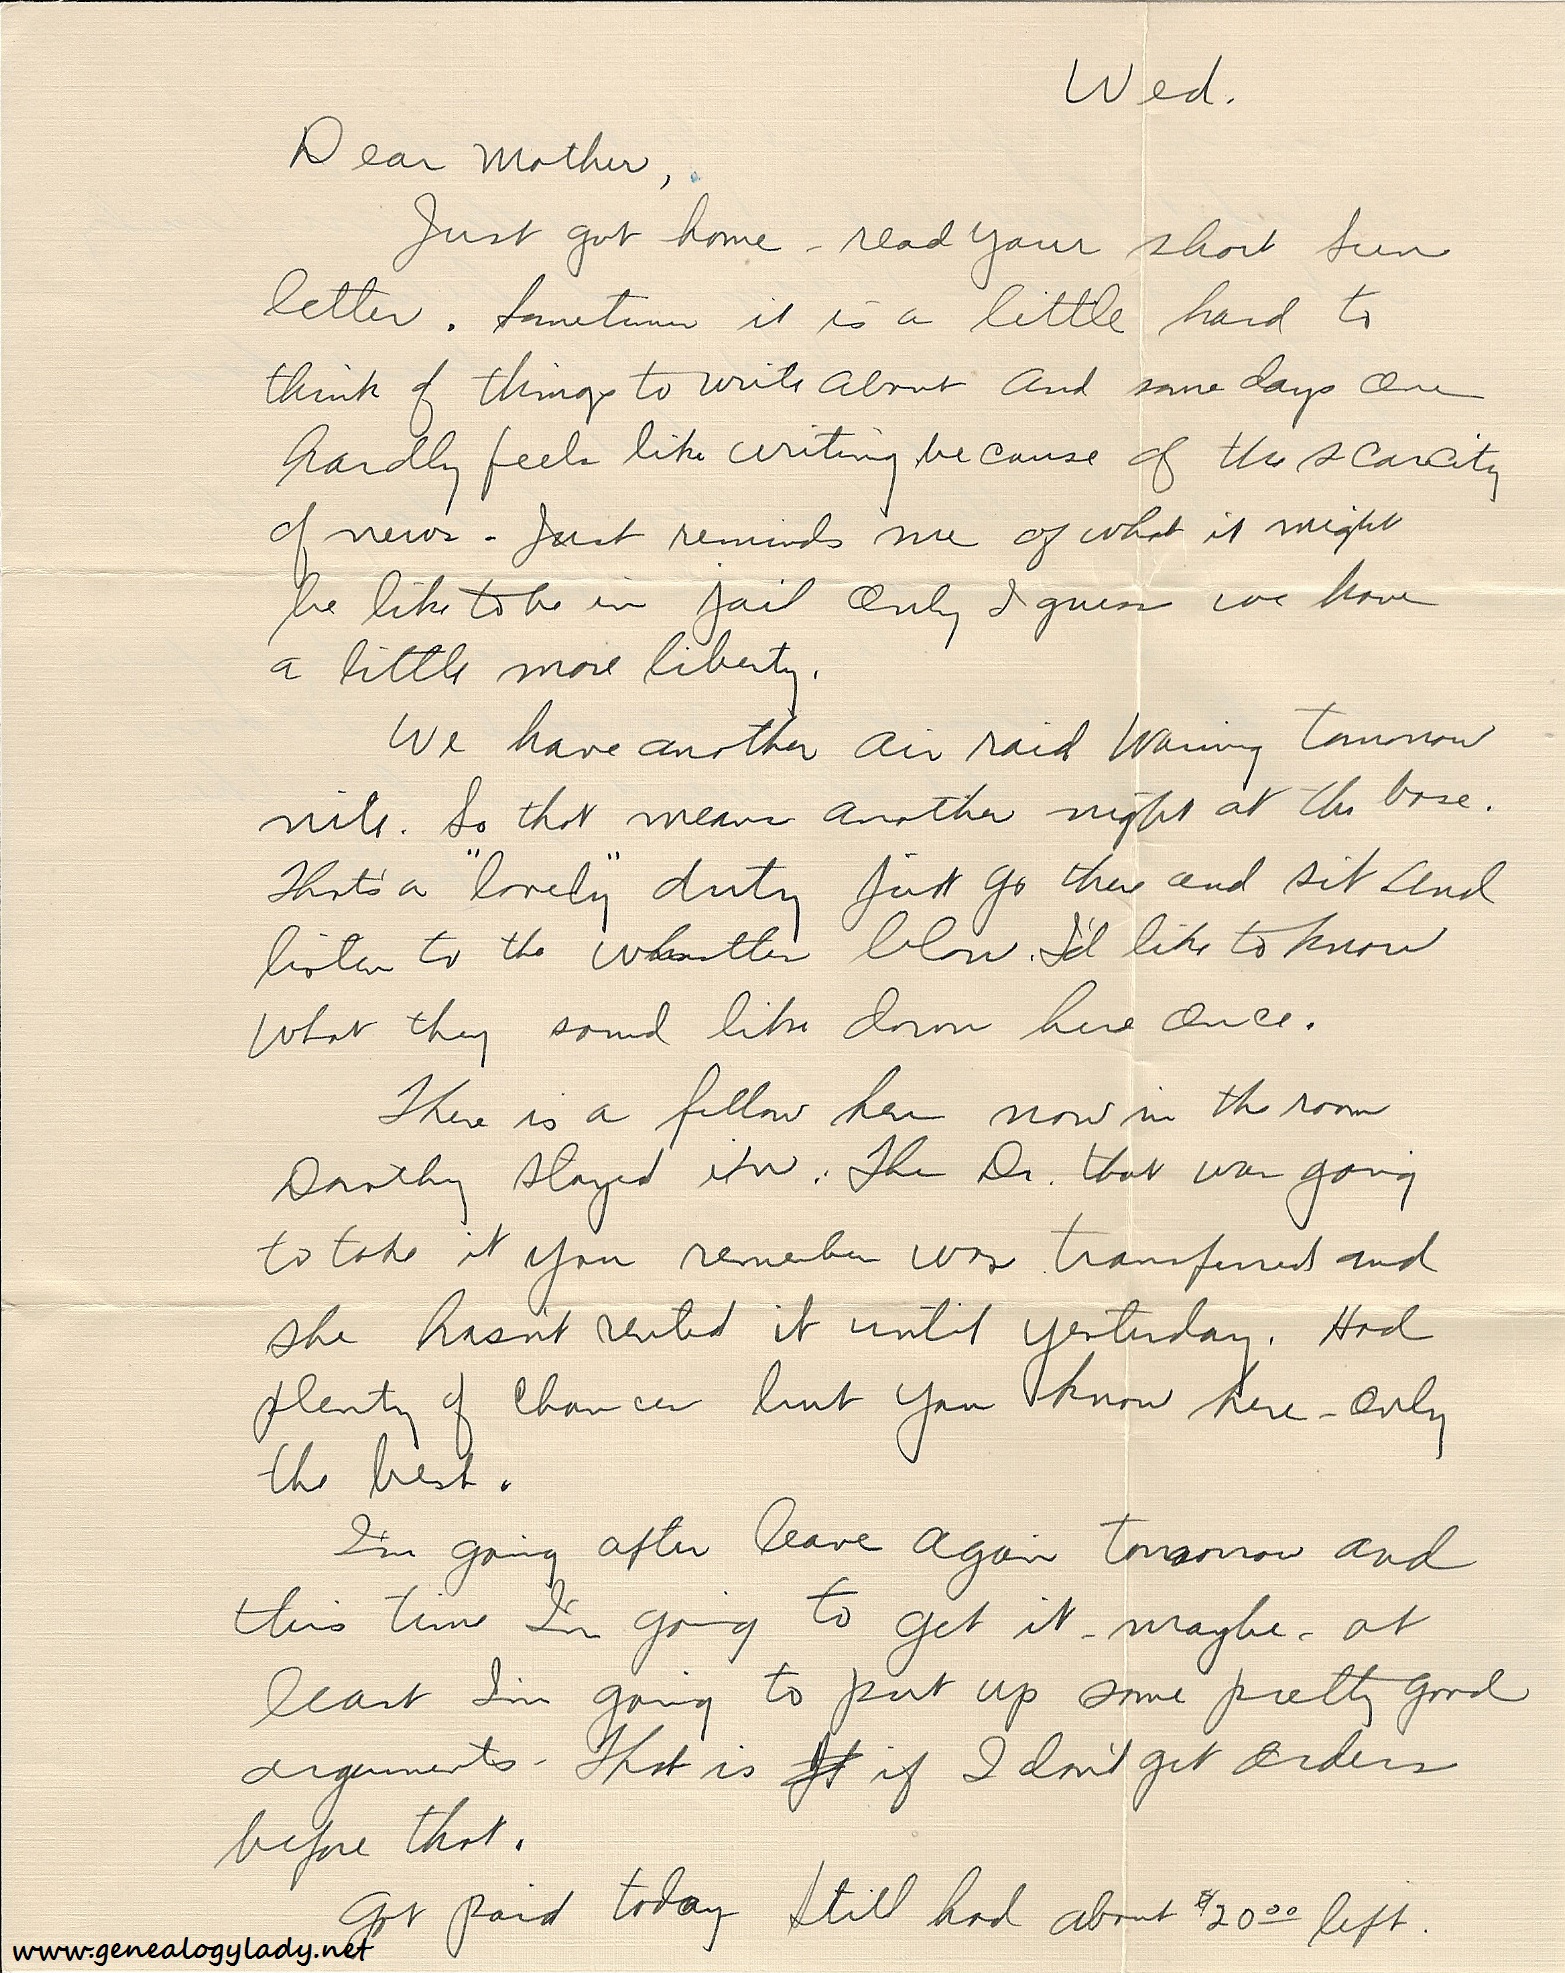 Wed.
Dear Mother,
Just got home - read your short Sun
letter. Sometimes it is a little hard to
think of things to write about and some days one
hardly feels like writing because of the scarcity
of news - Just reminds me of what it might
be like to be in jail only I guess we have
a little more liberty.
We have another air raid warning tomorrow
nite. So that means another night at the base.
That's a "lovely" duty just go there and sit and
listen to the whistles blow. I'd like to know
what they sound like down here once.
There is a fellow here now in the room
Dorothy stayed in. The Dr. that was going
to take it you remember was transferred and
she hasn't rented it until yesterday. Had
plenty of chances but you know here - only
the best.
I'm going after leave again tomorrow and
this time I'm going to get it - maybe - at
least I'm going to put up some pretty good
arguments - That is if I don't get orders
before that.
Got paid today Still had about $20.00 left.
www.genealogylady.net